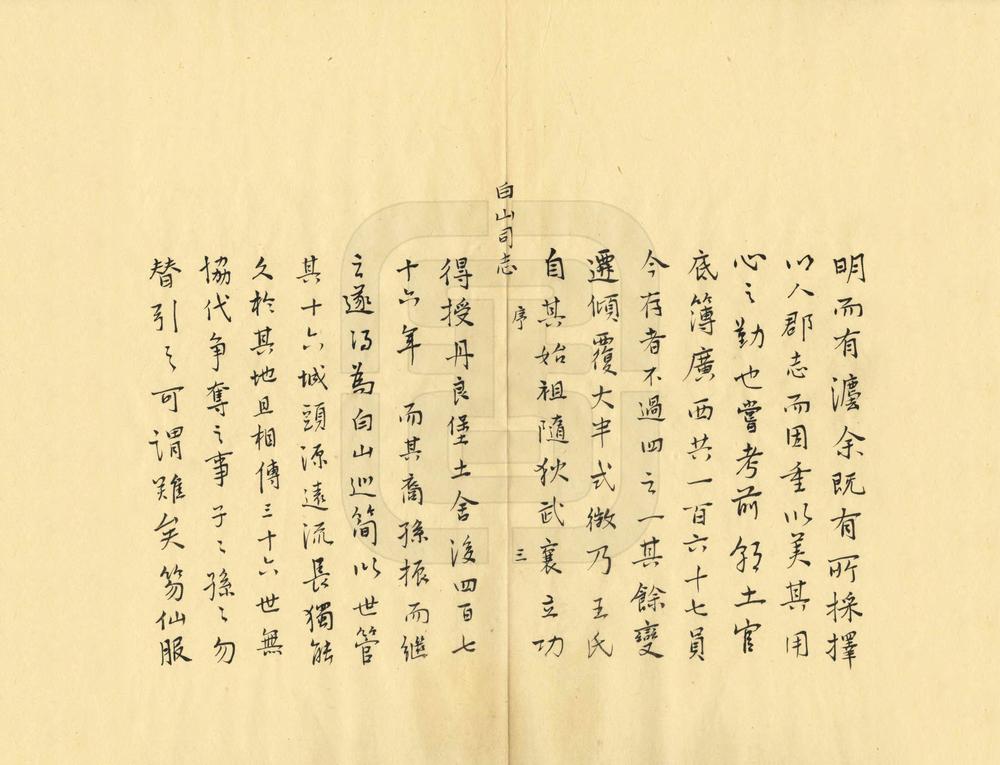 明而有瀍余既有所採擇
以入郡志而因重以美其用
心之勤也嘗考前領土官
底簿廣西共一百六十七員
今存者不過四之一其餘變
遷傾覆大半式微乃王氏
自其始祖隨狄武襄立功
白山司志 序 三
得授丹良堡土舍後四百七
十六年而其裔孫振而繼
之遂得為白山巡簡以世管
其十六城頭源遠流長獨能
久於其地且相傳三十六世無
協代争奪之事子〻孫〻勿
替引之可謂難矣笏仙服